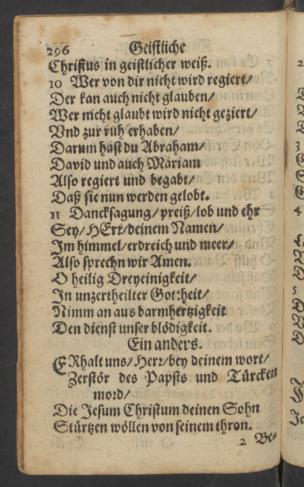 296 Geistliche
Christus in geistlicher weiß.
10 Wer von dir nicht wird regiert/
Der kan auch nicht glauben/
Wer nicht glaubt wird nicht geziert/
Vnd zur ruh erhaben/
Darum hast du Abraham/
David und auch Mariam
Also regiert und begabt/
Daß sie nun werden gelobt.
11 Dancksagung/preiß/lob und ehr
Sey/HErr/deinem Namen/
Im himmel/erdreich und meer/
Also sprechn wir Amen.
O heilig Dreyeinigkeit/
In unzertheilter Gottheit/
Nimm an aus barmhertzigkeit
Den dienst unser blödigkeit.
Ein anders.
ERhalt uns/Herr/bey deinem wort/
Zerstör des Papsts und Türcken
mord/
Die Jesum Christum deinen Sohn
Stürtzen wöllen von seinem thron.
2 Be-